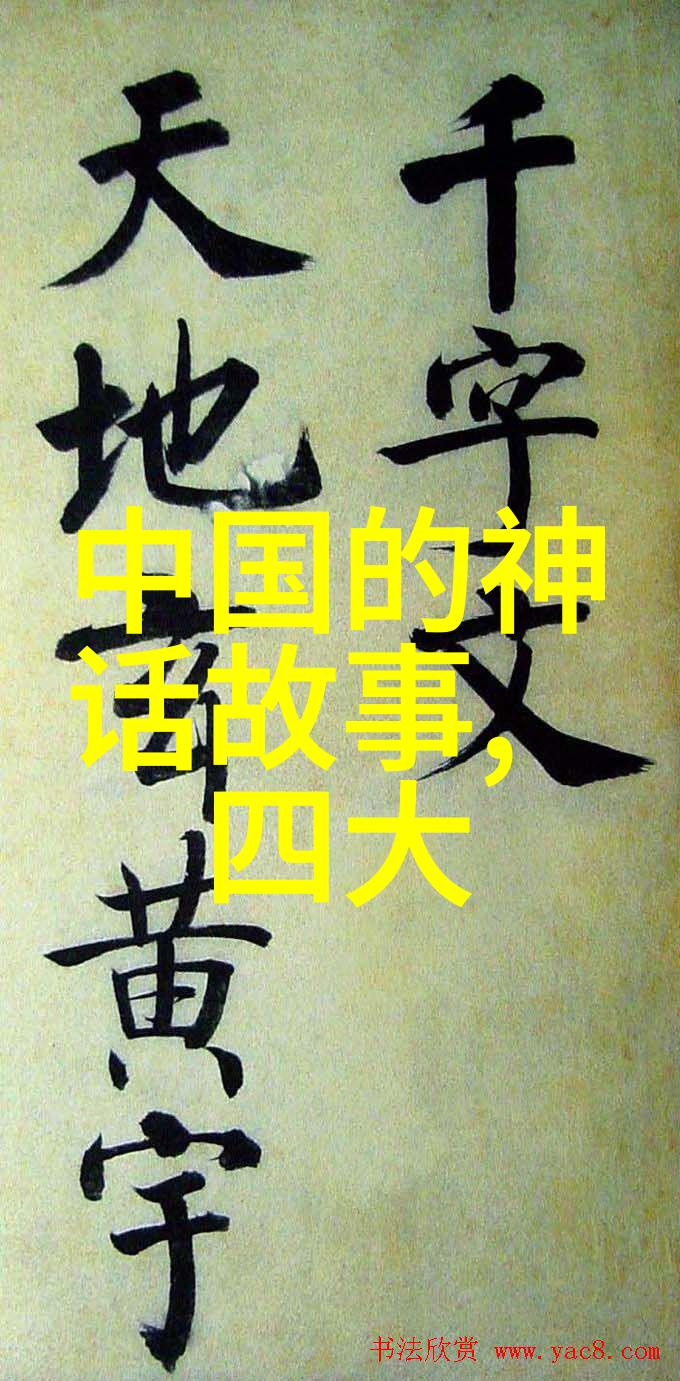 千字文
天地黄宇
中国的神
话故事,
四大
书法欣赏 www.yac8.com